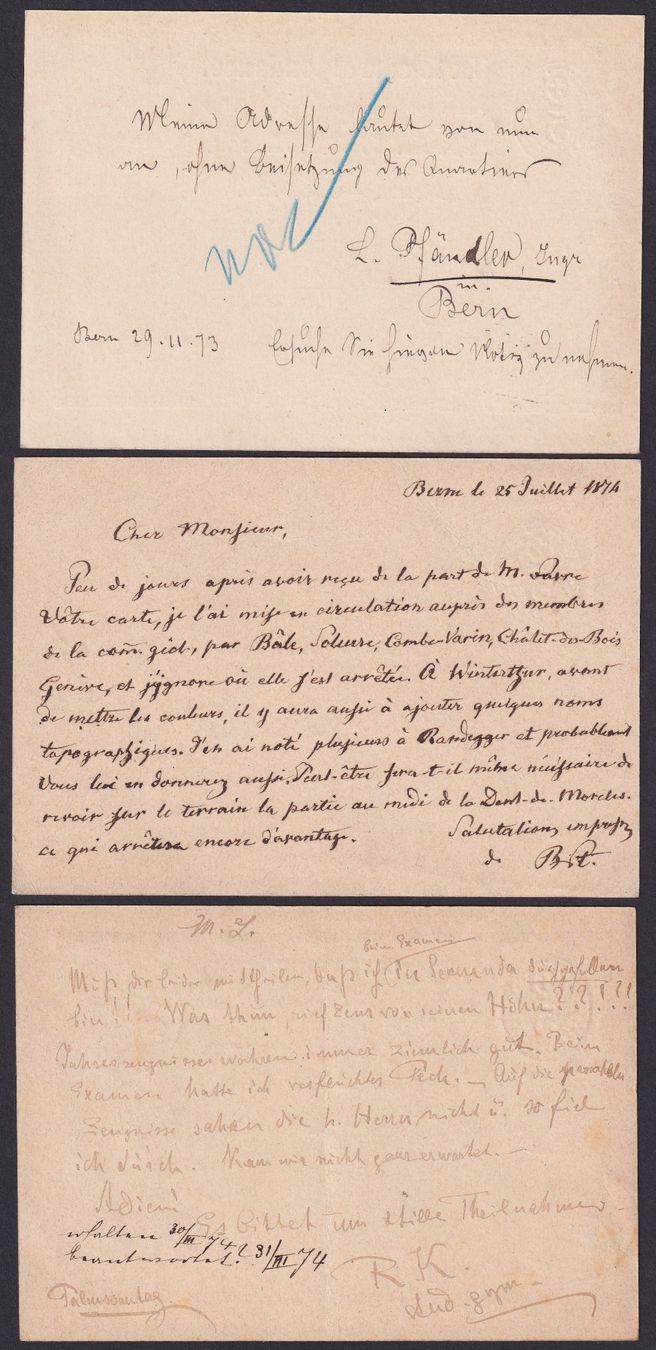 Meine Adresse lautet von nun
an, ohne Beisetzung des Quartiers
L. Pfändler, Ingr
in
Bern
Bern 29.11.73 Ersuche Sie hievon Notiz zu nehmen.
not
Berne le 25 Juillet 1874
Cher Monsieur,
Peu de jours après avoir reçu de la part de M. Favre
Vôtre carte, je l'ai mise en circulation auprès des membres
de la com. géol., par Bâle, Soleure, Combe-Varin, Châlet-des-Bois
Genève, et j'ignore où elle s'est arrêtée. À Winterthur, avant
de mettre les couleurs, il y aura aussi à ajouter quelques noms
topographiques. J'en ai noté plusieurs à Randegger et probablement
Vous lui en donnerez aussi. Peut-être sera-t-il même nécessaire de
revoir sur le terrain la partie au midi de la Dent-de-Morcles.
ce qui arrêtera encore d'avantage. Salutations
de B. St.
M. L.
beim Examen
Muß dir leider mittheilen, daß ich in Secunda durchgefallen
bin!! Was thun, rief Zeus von seinen Höhn??!?!
Jahreszeugnisse wahren immer ziemlich gut. Beim
Examen hatte ich verfluchtes Pech. — Auf die
Zeugnisse sahen die h. Herrn nicht u. so fiel
ich durch. Kam mir nicht ganz erwartet. —
Adieu!
Es bittet um stille Theilnahme
erhalten 30/III 74
beantwortet? 31/III 74
R K.
stud. gym.
Palmsonntag